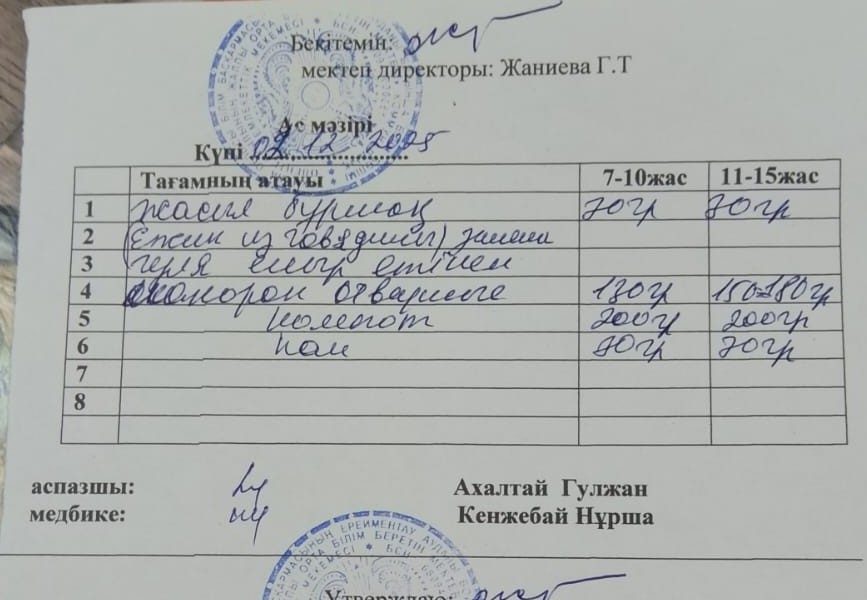 Бекітемін:
мектеп директоры: Жаниева Г.Т
Ас мәзірі
Күні 02.12.2025
Тағамның атауы 7-10жас 11-15жас
1 жасыл бұршақ 70гр 70гр
2 (Ёжик из говядины)
3 сиыр етінен
4 макорон отварные 130гр 150-180гр
5 компот 200гр 200гр
6 нан 70гр 70гр
7
8
аспазшы: Ахалтай Гулжан
медбике: Кенжебай Нұрша
Утверждаю: